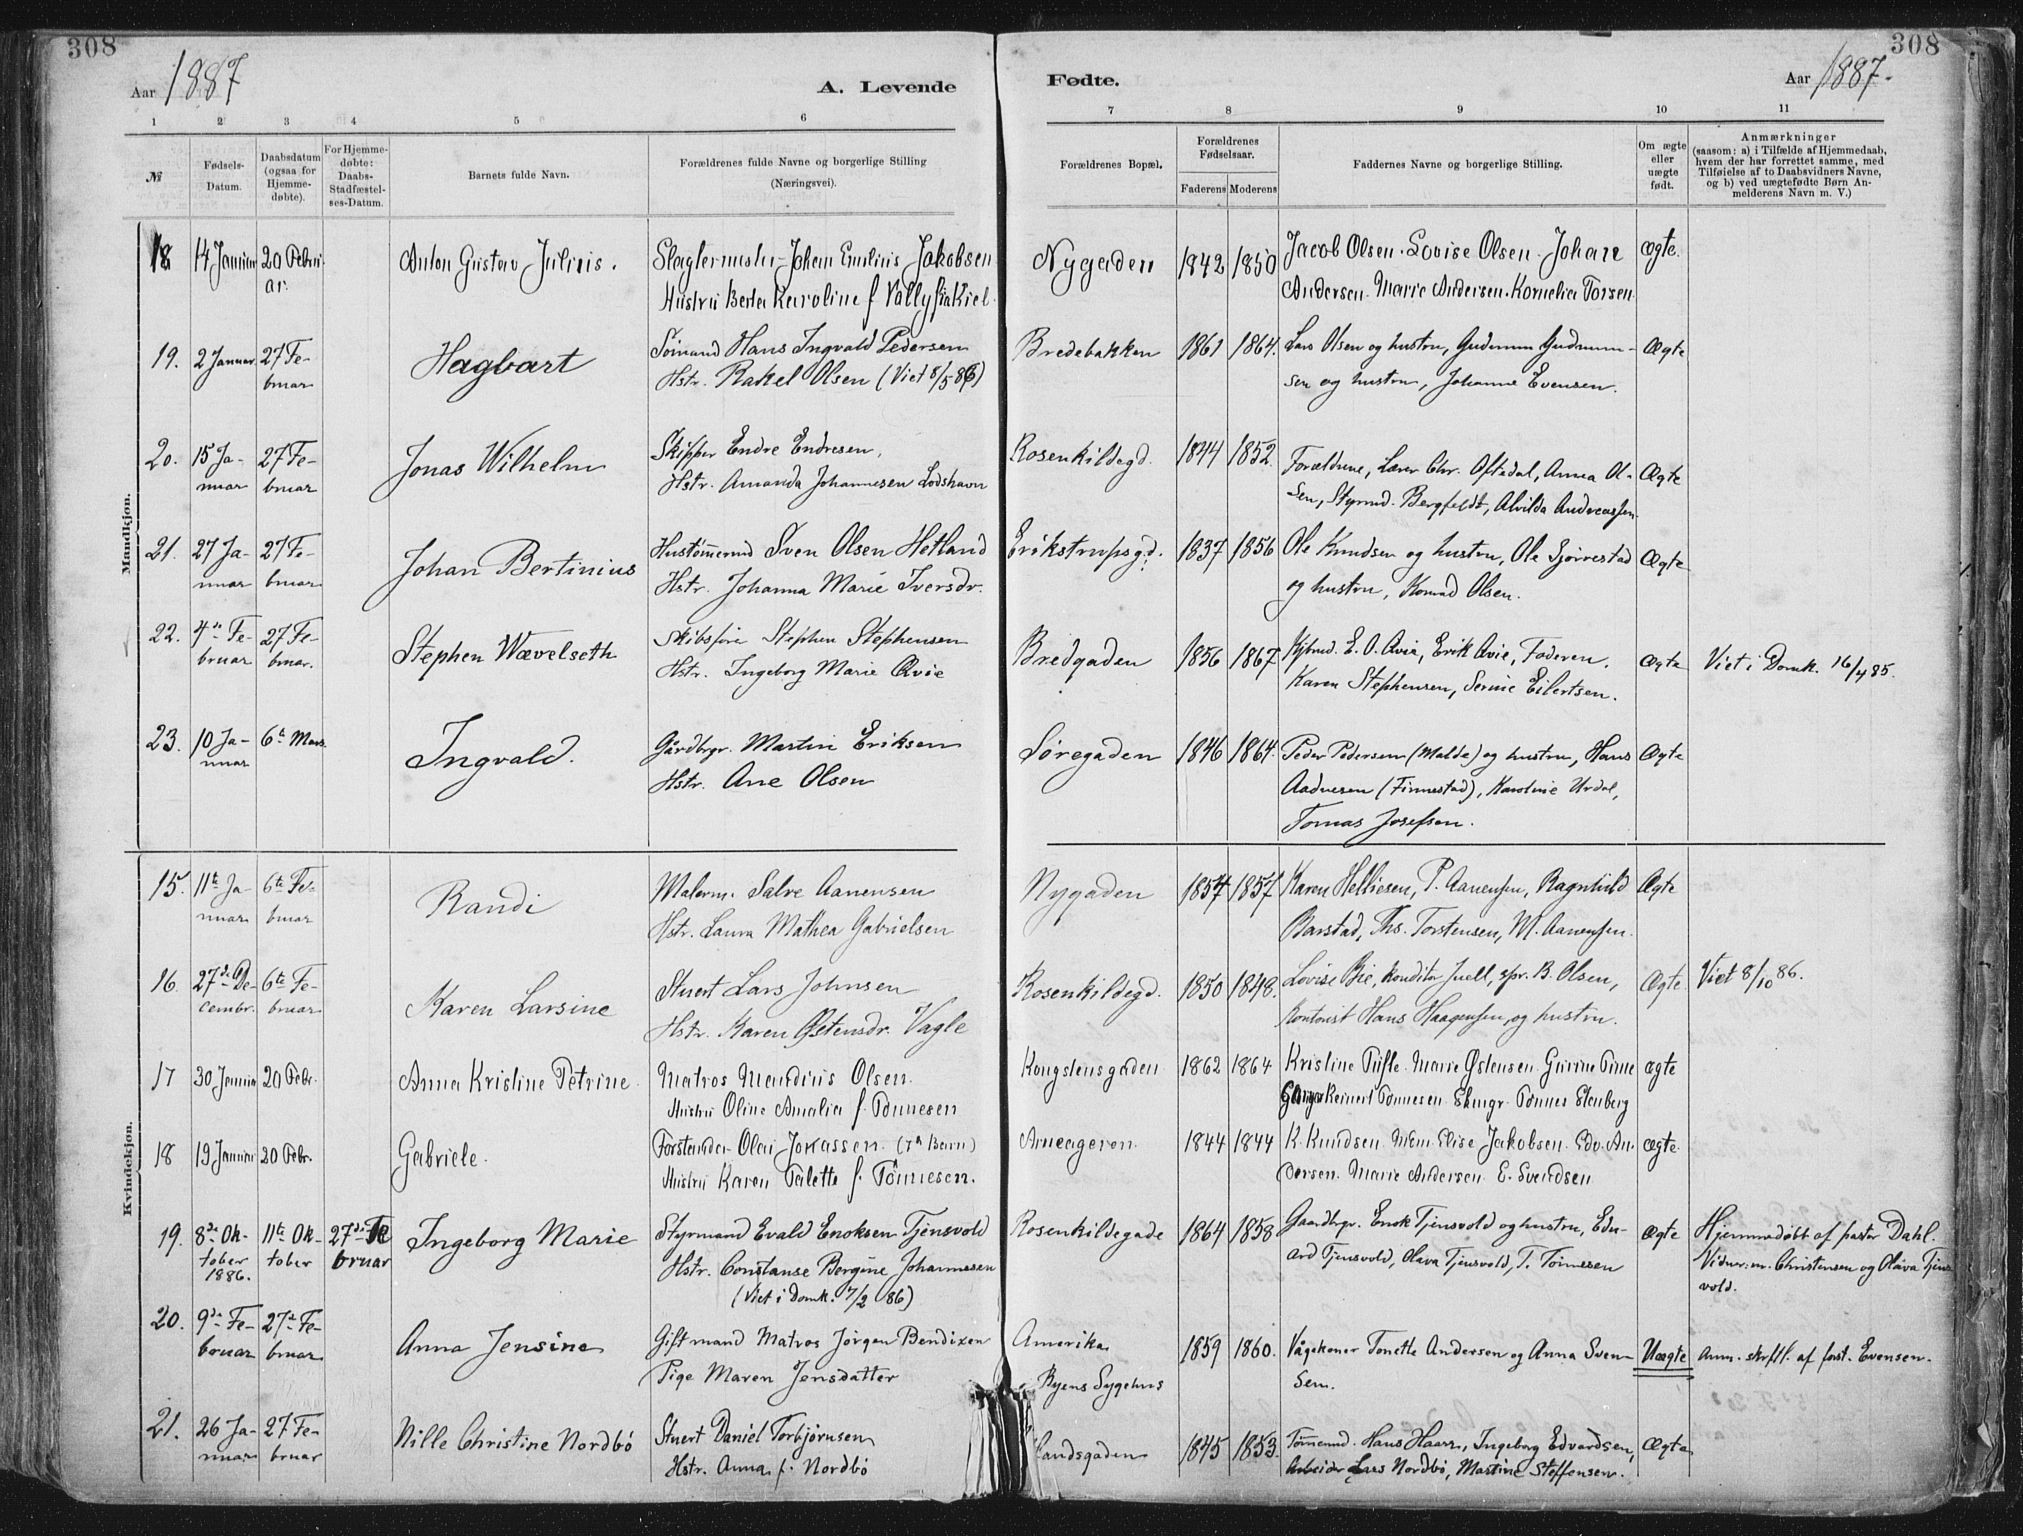 308
308
Aar 1887
A. Levende
Fødte.
Aar 1887.
1 2 3 4 5 6 7 8 9 10 11
№
Fødsels-
Datum.
Daabsdatum
(ogsaa for
Hjemme-
døbte).
For Hjemme-
døbte:
Daabs-
Stadfæstel-
ses-Datum.
Barnets fulde Navn.
Forældrenes fulde Navne og borgerlige Stilling
(Næringsvei).
Forældrenes Bopæl.
Forældrenes
Fødselsaar.
Faderens Moderens
Faddernes Navne og borgerlige Stilling.
Om ægte
eller
uægte
født.
Anmærkninger
(saasom: a) i Tilfælde af Hjemmedaab,
hvem der har forrettet samme, med
Tilføielse af to Daabsvidners Navne,
og b) ved uægtefødte Børn An-
melderens Navn m. V.)
Mandkjøn.
18 14 Januar 20 Febru-
ar.
Anton Gustav Julius.
Johan Emilius Jakobsen
Hustru Berta Karoline f.
Nygaden 1842 1850
Jacob Olsen. Lovise Olsen. Johan
Andersen. Marie Andersen. Kornelia Torsen.
ægte.
19. 2 Januar 27 Fe-
bruar
Hagbart
Sømand Hans Ingvald Pedersen
Hstr. Rakel Olsen (Viet 8/5 86)
Bredebakken 1861 1864.
Lars Olsen og hustru, Gudmun Gudmun-
sen og hustru, Johanne Evensen.
Ægte
20. 15 Ja-
nuar
27 Fe-
bruar
Jonas Wilhelm
Skipper Endre Endresen,
Hstr. Amanda Johannesen Lodshavn
Rosenkildegd. 1844 1852
Forældrene, Lærer Chr. Oftedal, Anna Ol-
sen, Styrmd. Bergfeldt, Alvilda Andreassen.
Ægte
21. 27 Ja-
nuar
27 Fe-
bruar
Johan Bertinius
Hustømmrmd Sven Olsen Hetland
Hstr. Johanna Marie Iversdr.
Erikstrupsgd. 1837 1856
Ole Knudsen og hustru, Ole Gjørrestad
og hustru, Konrad Olsen.
Ægte
22. 4de Fe-
bruar
27 Fe-
bruar.
Stephen Wævelseth
Skibsfører Stephen Stephensen
Hstr. Ingeborg Marie Qvie
Bredgaden 1856 1867
Kjbmd. E. O. Qvie, Erik Qvie, Faderen.
Karen Stephensen, Serine Eilertsen.
ægte
Viet i Domk. 16/4 85.
23. 10 Ja-
nuar
6te Mars
Ingvald.
Gårdbrgr. Martin Eriksen
Hstr. Ane Olsen
Søregaden 1846 1864.
Peder Pedersen (Malde) og hustru, Hans
Aadnesen (Finnestad), Karoline Urdal,
Tomas Josefsen.
Ægte
Kvindekjøn.
15. 11te Ja-
nuar
6te Fe-
bruar
Randi
Malerm. Salve Aanensen
Hstr. Laura Mathea Gabrielsen
Nygaden 1857 1857
Karen Helliesen, P. Aanensen, Ragnhild
Barstad, Ths. Torstensen, M. Aanensen.
Ægte
16. 27de De-
cembr.
6te Fe-
bruar
Karen Larsine
Stuert Lars Johnsen
Hstr. Karen Østensdr. Vagle
Rosenkildegd. 1850 1848.
Lovise Bie, konditor Juell, B. Olsen,
Kontorist Hans Haagensen, og hustru.
Ægte
Viet 8/10 86.
17 30 Januar 20 Febr.
Anna Kristine Petrine.
Matros Mandius Olsen.
Hustru Oline Amalia f. Tønnesen
Kongstensgaden 1862 1864
Kristine Tufte. Marie Østensen. Gurine Time
Reinert Tønnesen. Tønnes Stenberg
ægte
18 19 Januar 20 Febr.
Gabriele.
Forstander Olai Jonassen. (7de Barn)
Hustru Karen Talette f. Tønnesen.
Arneageren 1844 1844
K. Knudsen. Elise Jakobsen. Edv. An-
dersen. Marie Andersen. E. Svendsen
ægte.
19. 8de Ok-
tober
1886.
11te Ok-
tober
27de Fe
bruar
Ingeborg Marie
Styrmand Evald Enoksen Tjensvold
Hstr. Constanse Bergine Johannesen
(Viet i Domk. 7/2 86)
Rosenkildegade 1864 1858
Gaardbgr. Enok Tjensvold og hustru, Edv-
ard Tjensvold, Olava Tjensvold, T. Tønnesen
ægte
Hjemmedøbt af pastor Dahl.
Vidner: Christensen og Olava Tjens
vold.
20. 9de Fe-
bruar
27de Fe-
bruar
Anna Jensine
Gift mand Matros Jørgen Bendixen
Pige Maren Jensdatter
Amerika
Byens Sygehus
1859 1860.
Vågekoner Tonette Andersen og Anna Sven-
sen.
Uægte
Anm. skrftl. af forst. Evensen.
21. 26 Ja-
nuar
27 Fe-
bruar
Nille Christine Nordbø
Stuert Daniel Torbjørnsen
Hstr. Anna f. Nordbø
Sandsgaden 1845 1853.
Tømmermd. Hans Haarr, Ingeborg Edvardsen,
Arbeider Lars Nordbø, Martine Steffensen.
Ægte